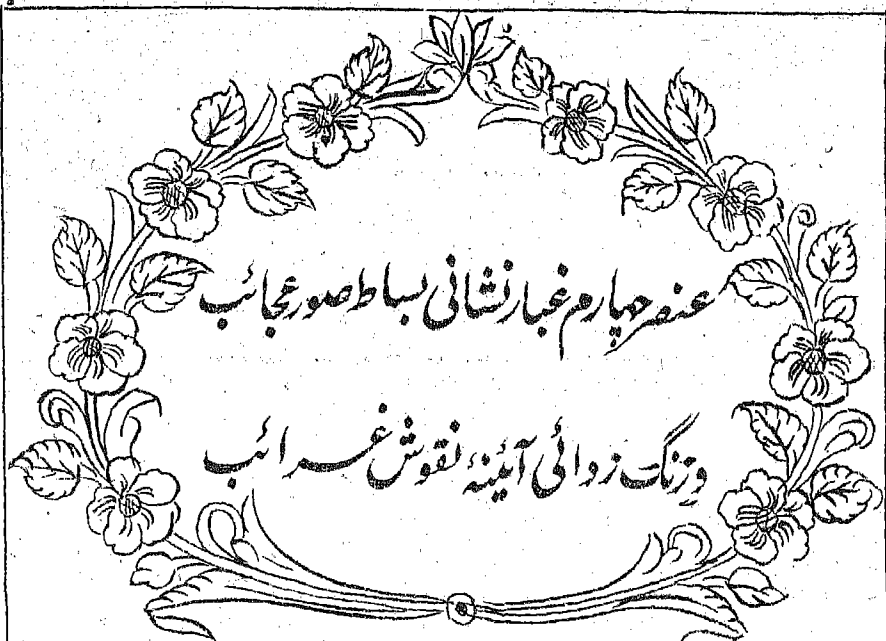 عنصر چهارم غبار نشانی بساط صور عجائب
و زنگ زدائی آئینۂ نقوش غرائب